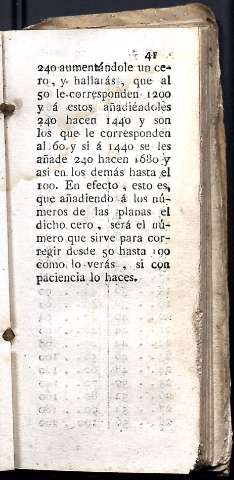 41
240 aumentándole un ce-
ro, y hallarás, que al
50 le corresponden 1200
y á estos añadiéndoles
240 hacen 1440 y son
los que le corresponden
al 60 y si á 1440 se les
añade 240 hacen 1680 y
asi en los demás hasta el
100. En efecto, esto es,
que añadiendo á los nú-
meros de las planas el
dicho cero, será el nú-
mero que sirve para cor-
regir desde 50 hasta 100
como lo verás, si con
paciencia lo haces.